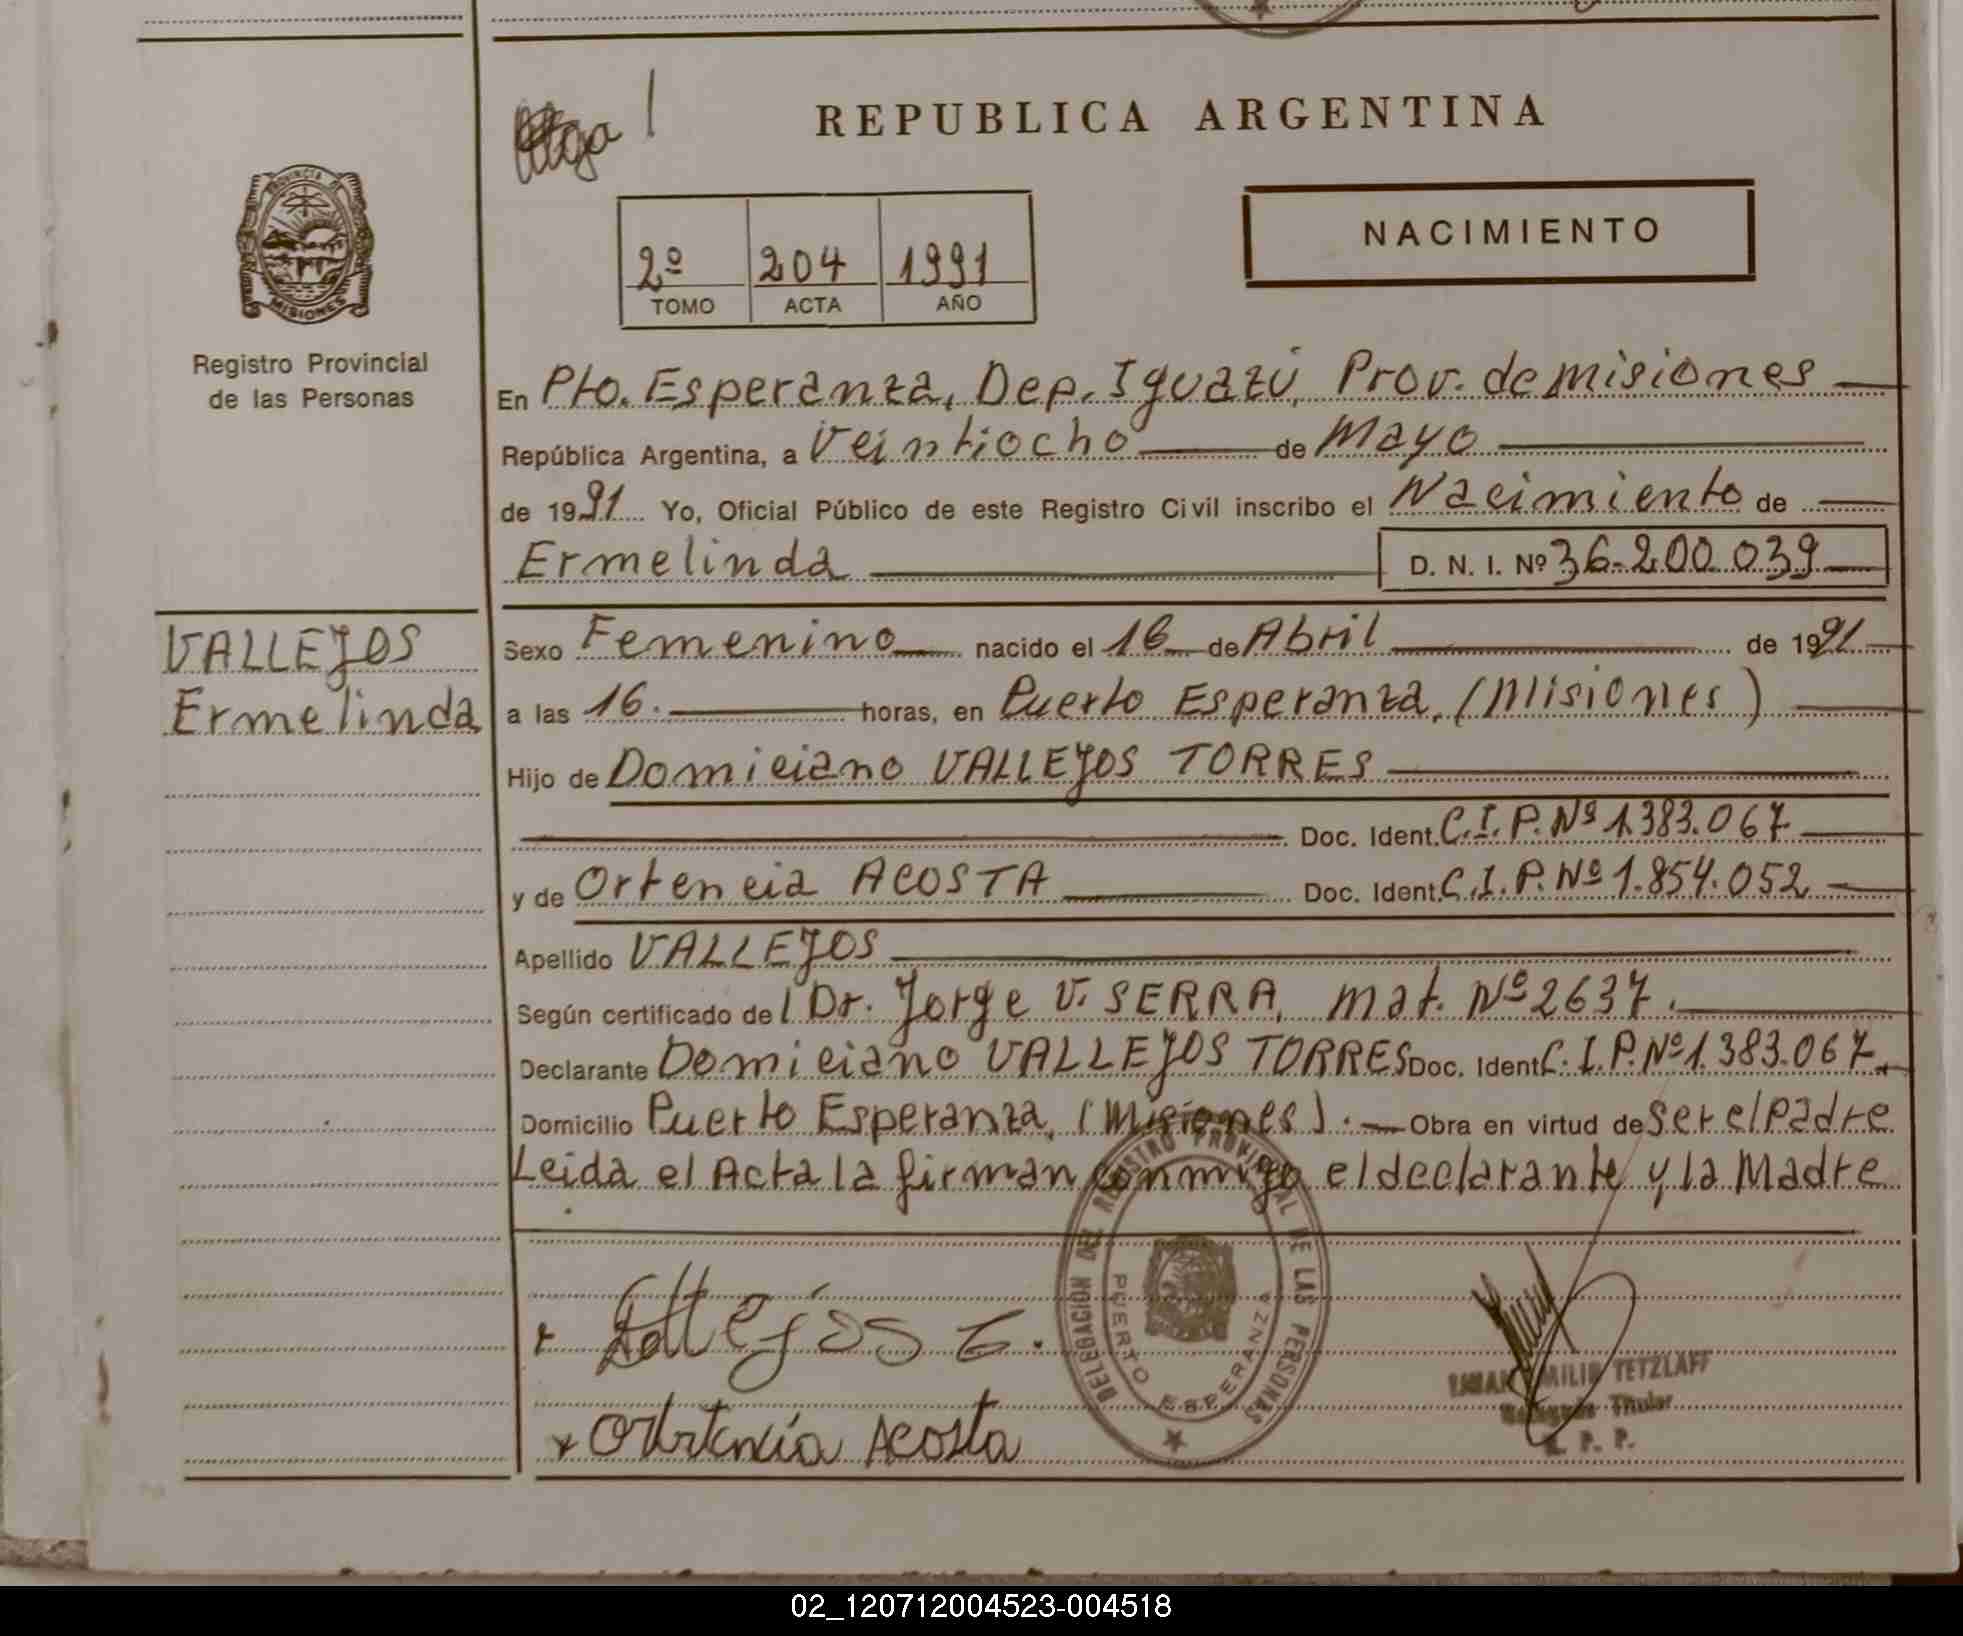 REPUBLICA ARGENTINA
NACIMIENTO
2º 204 1991
TOMO ACTA AÑO
PROVINCIA DE
MISIONES
Registro Provincial
de las Personas
En Pto. Esperanza, Dep. Iguazú, Prov. de misiones
República Argentina, a Veintiocho de Mayo
de 1991 Yo, Oficial Público de este Registro Civil inscribo el Nacimiento de
Ermelinda D. N. I. Nº 36.200.039
VALLEJOS
Ermelinda
Sexo Femenino nacido el 16 de Abril de 1991
a las 16. horas, en Puerto Esperanza, (Misiones)
Hijo de Domiciano VALLEJOS TORRES
Doc. Ident. C.I.P. Nº 1.383.067
y de Ortencia ACOSTA Doc. Ident. C.I.P. Nº 1.854.052
Apellido VALLEJOS
Según certificado del Dr. Jorge V. SERRA, mat. Nº 2637.
Declarante Domiciano VALLEJOS TORRES Doc. Ident C.I.P. Nº 1.383.067
Domicilio Puerto Esperanza, (Misiones). Obra en virtud de ser el Padre
Leida el Acta la firman conmigo el declarante y la Madre
DELEGACION DEL REGISTRO PROVINCIAL DE LAS PERSONAS
PUERTO ESPERANZA
TETZLAFF
Titular
R. P. P.
Ortencia Acosta
02_120712004523-004518